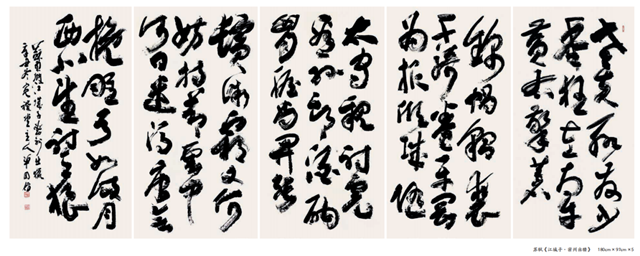 老夫聊发少
年狂左牵
黄右擎苍
锦帽貂裘
千骑卷平冈
为报倾城随
太守亲射虎
看孙郎酒酣
胸胆尚开张
鬓微霜又何
妨持节云中
何日遣冯唐会
挽雕弓如满月
西北望射天狼
江城子密州出猎
苏轼《江城子·密州出猎》